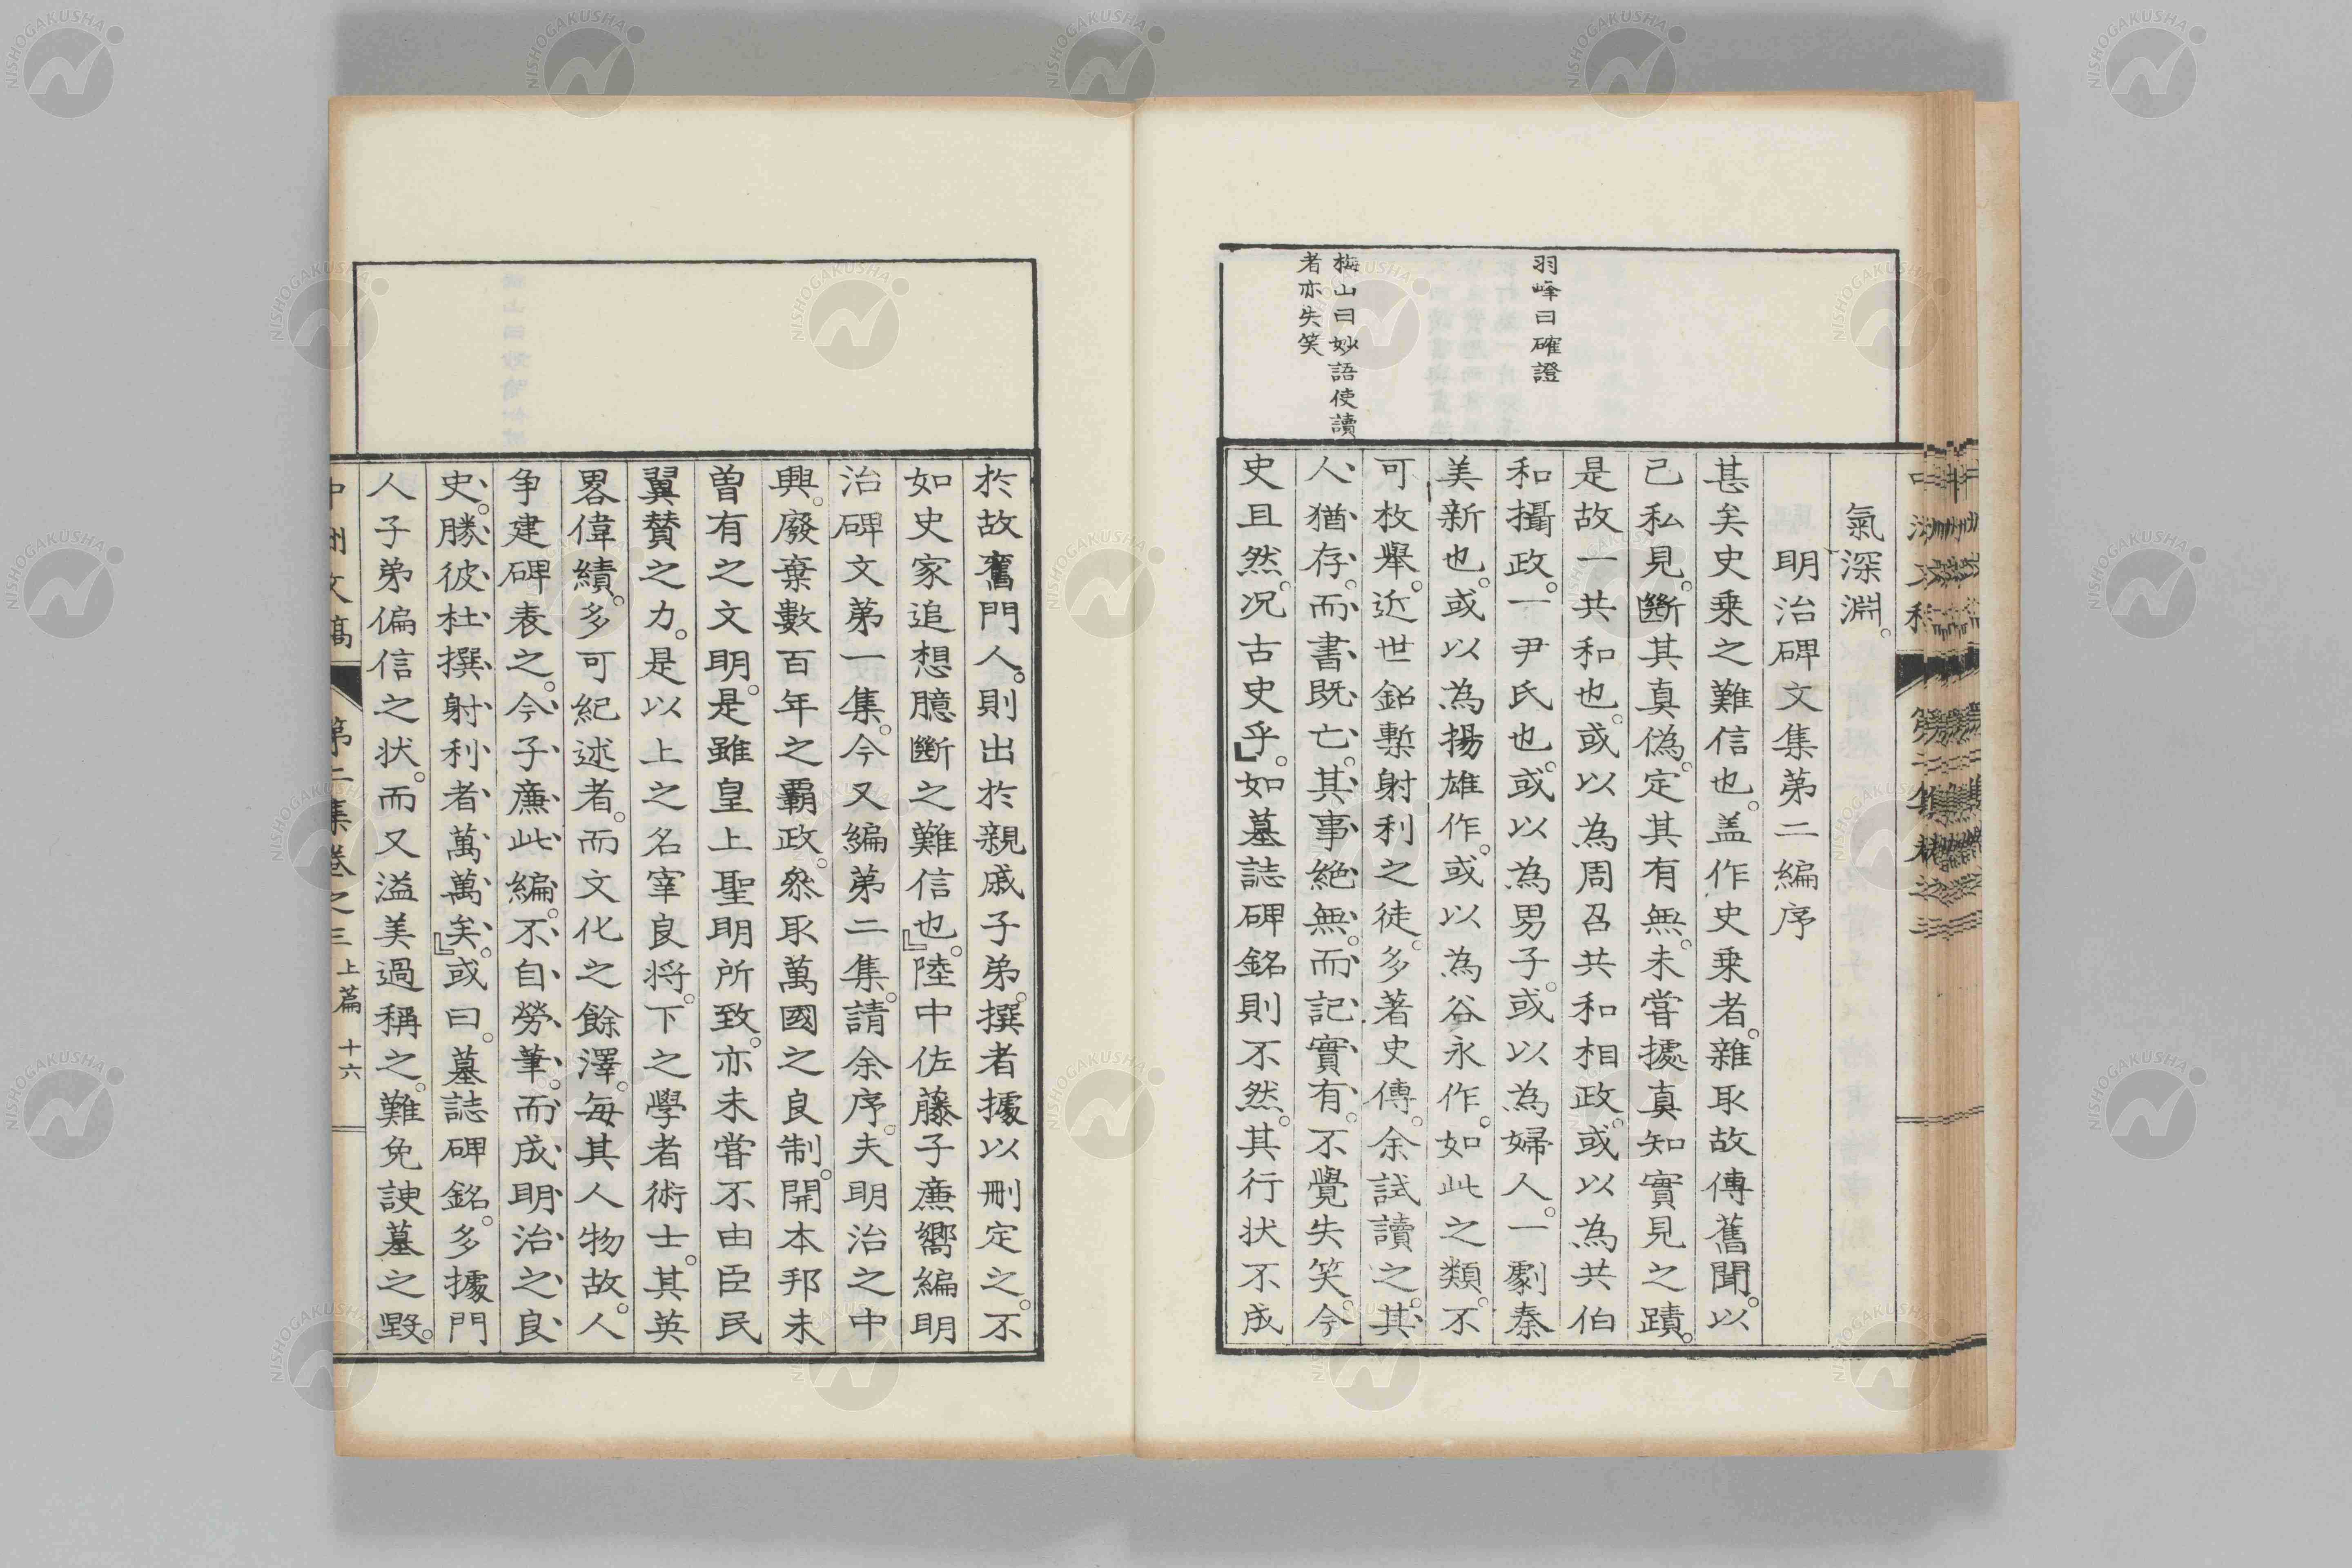 羽峰曰確證
梅山曰妙語使讀
者亦失笑
氣深淵。
明治碑文集第二編序
甚矣史乘之難信也。盖作史乘者。雜取故傳舊聞。以
己私見。斷其真偽。定其有無。未嘗據真知實見之蹟。
是故一共和也。或以為周召共和相政。或以為共伯
和攝政。一尹氏也。或以為男子。或以為婦人。一劇秦
美新也。或以為揚雄作。或以為谷永作。如此之類。不
可枚舉。近世銘槧射利之徒。多著史傳。余試讀之。其
人猶存。而書既亡。其事絕無。而記實有。不覺失笑。今
史且然。況古史乎。』如墓誌碑銘則不然。其行状不成
於故舊門人。則出於親戚子弟。撰者據以刪定之。不
如史家追想臆斷之難信也。』陸中佐藤子廉嚮編明
治碑文第一集。今又編第二集。請余序。夫明治之中
興。廢棄數百年之霸政。叅取萬國之良制。開本邦未
曽有之文明。是雖皇上聖明所致。亦未嘗不由臣民
翼賛之力。是以上之名宰良將。下之學者術士。其英
畧偉績。多可紀述者。而文化之餘澤。每其人物故。人
争建碑表之。今子廉此編。不自勞筆。而成明治之良
史。勝彼杜撰射利者萬萬矣。』或曰。墓誌碑銘。多據門
人子弟偏信之状。而又溢美過稱之。難免諛墓之毀。
中洲文稿 第二集卷之三 上篇 十六